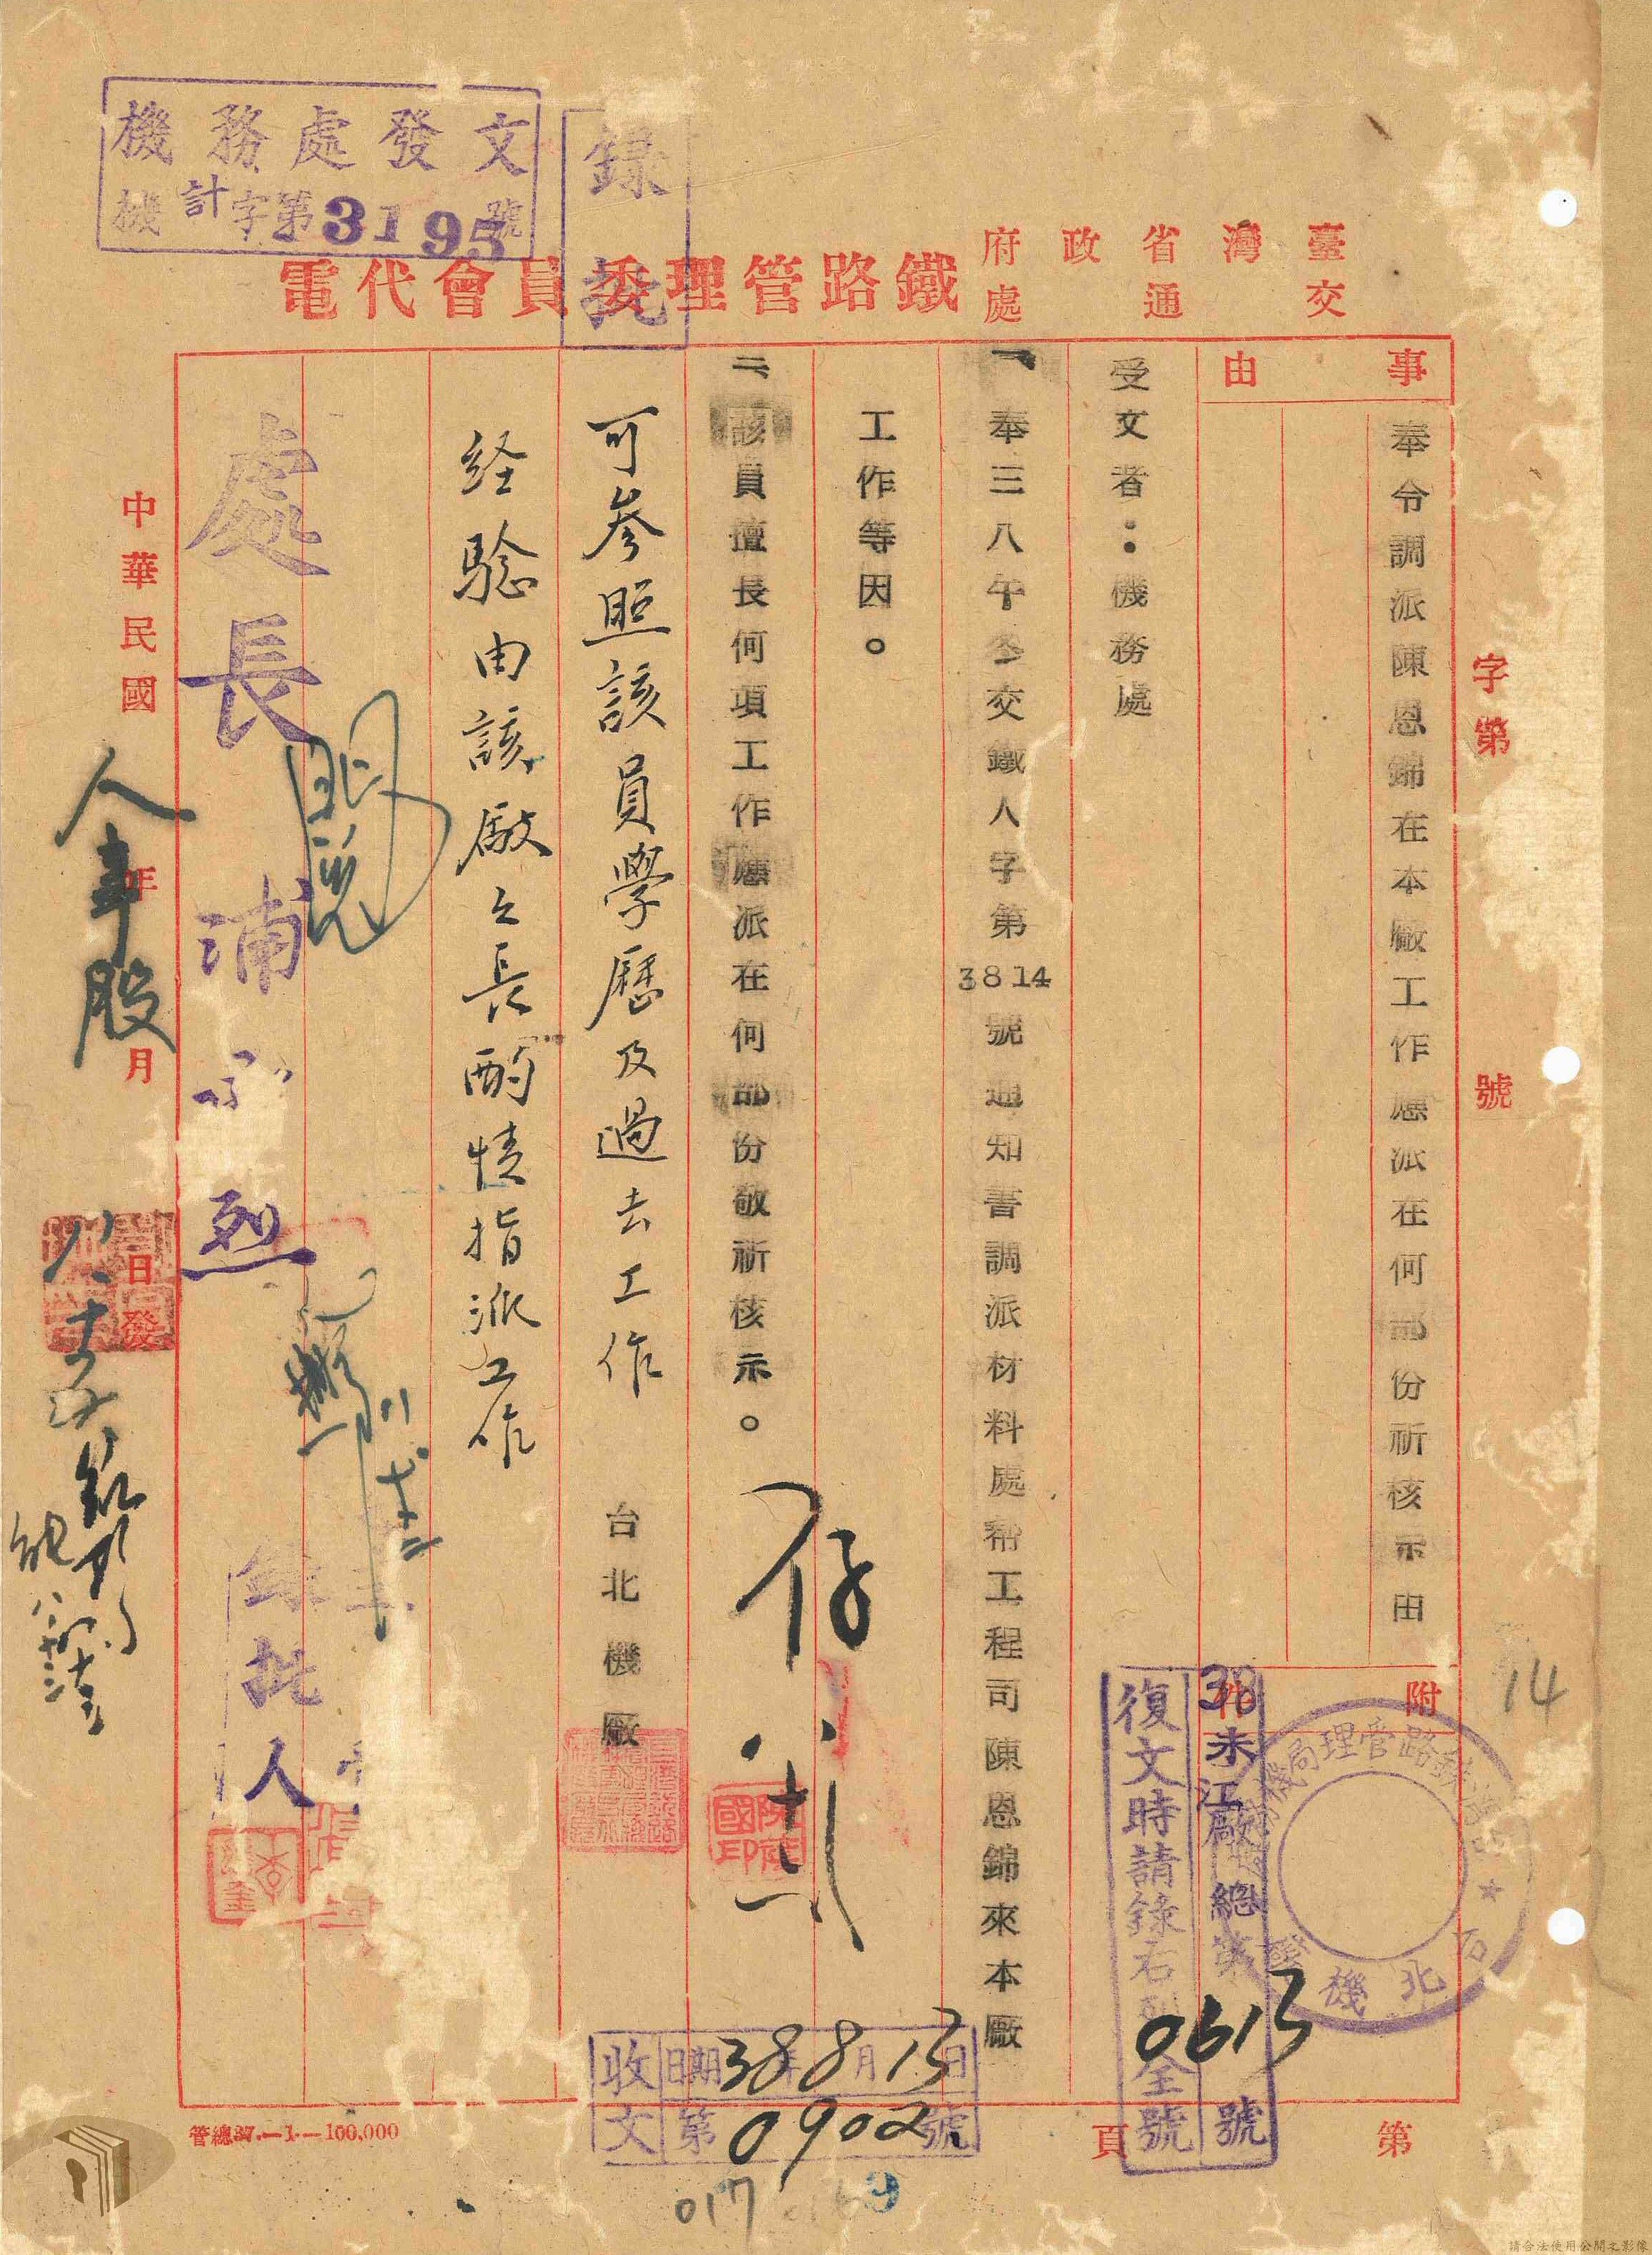 機務處發文
機計字第3195號
錄批
臺灣省政府
交通處
鐵路管理委員會代電
字第 號
事由
奉令調派陳恩錦在本廠工作應派在何部份祈核示由
附件
受文者：機務處
一、奉三八午冬交鐵人字第3814號通知書調派材料處帮工程司陳恩錦來本廠
工作等因。
二、該員擅長何項工作應派在何部份敬祈核示。
台北機廠
可參照該員學歷及過去工作
経驗由該廠之長酌情指派工作
存
處長
烈
錄批人
人事股
中華民國 年 月 日發
38未江廠總第0613號
復文時請錄右列全號
收文
日期38年8月13日
第0902號
第 頁
管總37.—1—100,000
14
017
請合法使用公開之影像